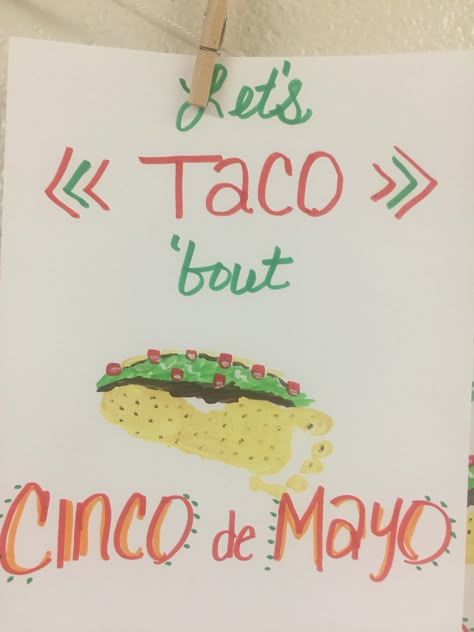 Let's
« TACO »
'bout
Cinco de Mayo